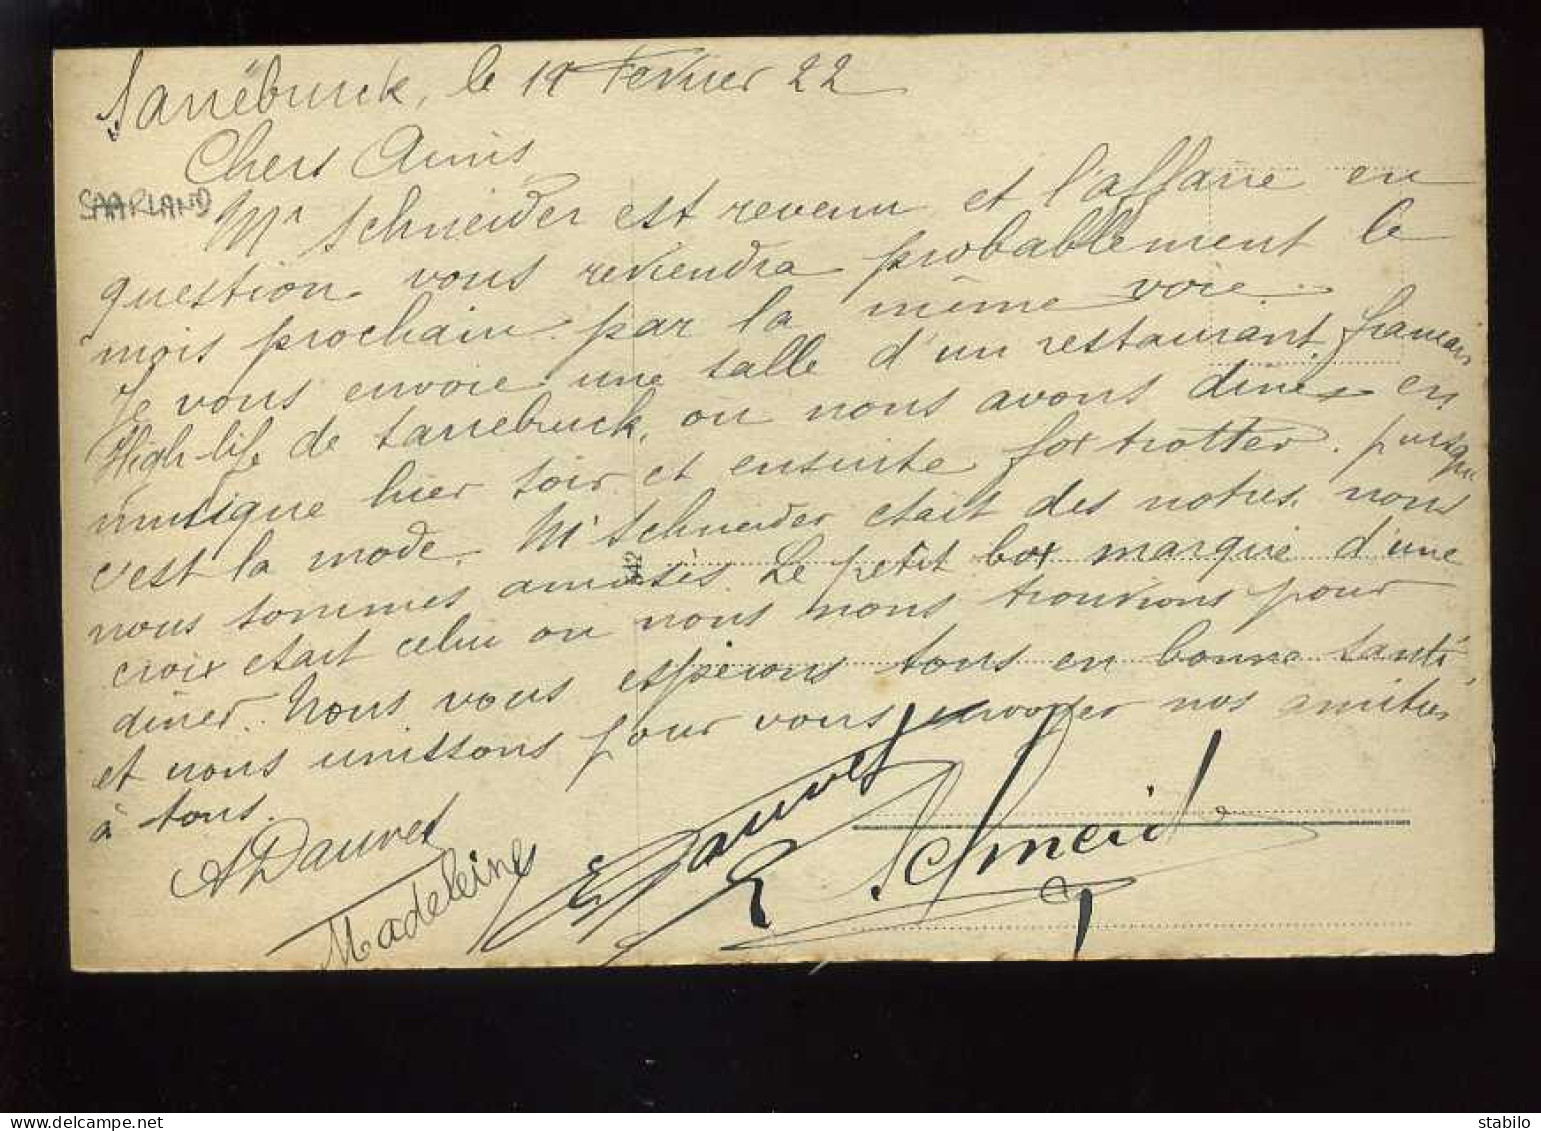 Sarrebruck, le 19 Fevrier 22
Chers Amis,
SAARLAND
Mr Schneider est revenu et l'affaire en
question vous reviendra probablement le
mois prochain par la même voie.
Je vous envoie une salle d'un restaurant francais
High-life de Sarrebruck, ou nous avons dinés en
musique hier soir et ensuite fox trotter. puisque
c'est la mode. Mr Schneider etait des notres. nous
nous sommes amusés. Le petit box marqué d'une
croix etait celui ou nous nous trouvions pour
diner. Nous vous espérons tous en bonne santé,
et nous unissons pour vous envoyer nos amitiés
à tous.
A Dauvet
Madeleine
E Dauvet
E Schneid